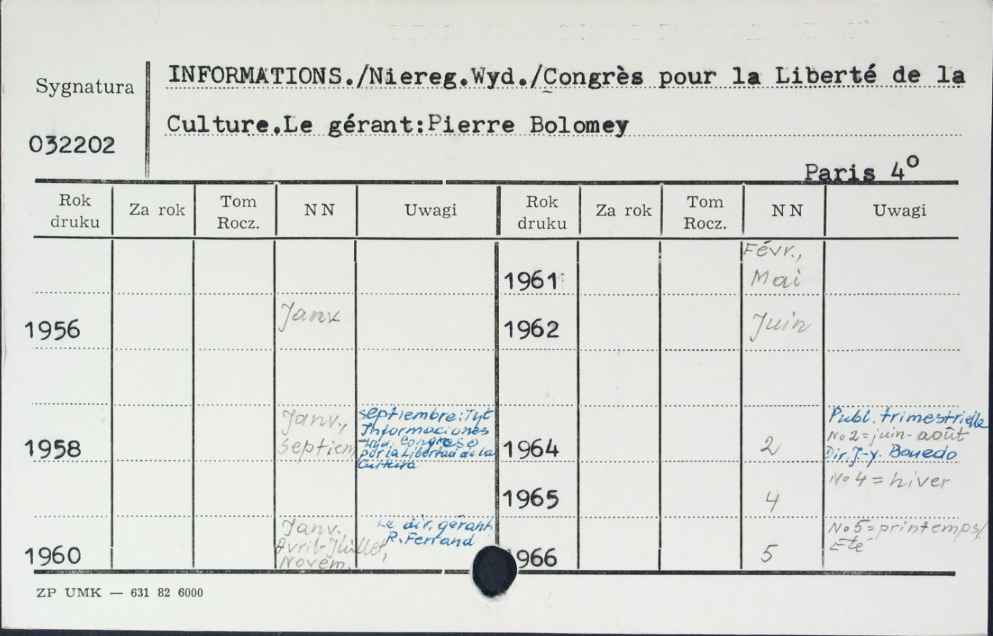 INFORMATIONS./Niereg.Wyd./Congrès pour la Liberté de la
Sygnatura
Culture.Le gérant:Pierre Bolomey
032202
Paris 4°
Rok druku Za rok Tom Rocz. NN Uwagi Rok druku Za rok Tom Rocz. NN Uwagi
1961 Févr., Mai
1956 Janv
1962 Juin
1958 Janv., Septiem
septiembre: Tyt
Informaciones
Congreso
por la Libertad de la
Cultura
1964 2
Publ. trimestrielle
No 2 = juin-août
Dir. J-y.
1965 4 No 4 = hiver
1960 Janv.
Avril-Juillet,
Novem.
Le dir. gérant
R. Ferrand
1966 5 No 5 = printemps/
Eté
ZP UMK — 631 82 6000